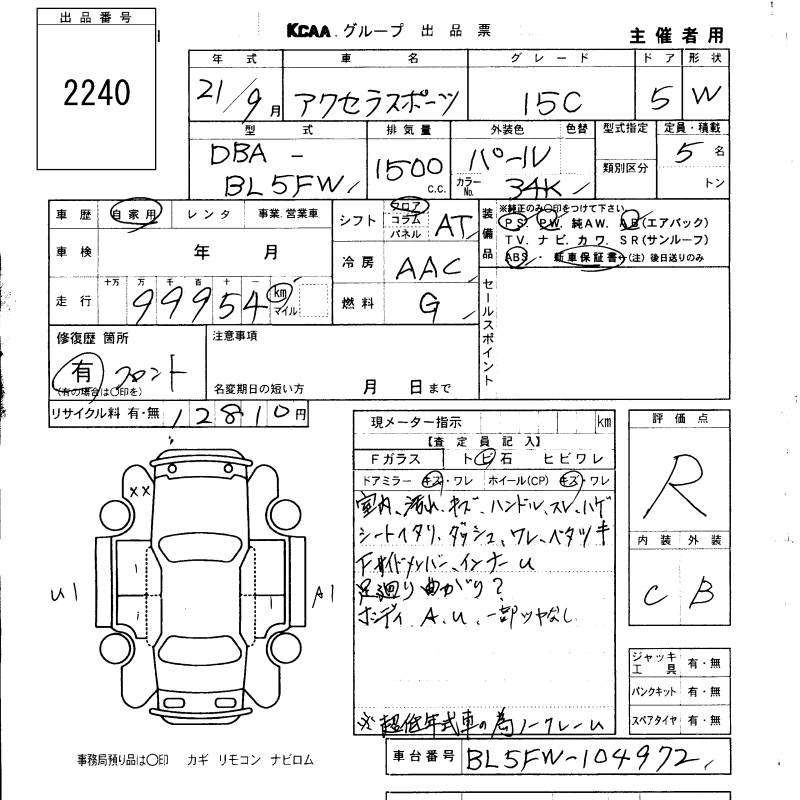 出品番号
2240
KCAA グループ 出品票
主催者用
年式 車名 グレード ドア 形状
21/9月 アクセラスポーツ 15C 5 W
型式 排気量 外装色 色替 型式指定 定員・積載
DBA - パール 5名
BL5FW 1500 C.C. カラーNo. 34K 類別区分 トン
車歴 自家用 レンタ 事業.営業車
シフト フロア コラム パネル AT
装備品 ※純正のみ〇印をつけて下さい
PS. PW. 純AW. AB(エアバック)
TV. ナビ. カワ. SR(サンルーフ)
ABS・新車保証書←(注)後日送りのみ
車検 年 月
冷房 AAC
走行 十万 万 千 百 十 一
99954 km マイル
燃料 G
セールスポイント
修復歴 箇所
有 フロント
(有の場合は〇印を)
注意事項
名変期日の短い方 月 日まで
リサイクル料 有・無 12810円
現メーター指示 km
【査定員記入】
Fガラス トビ石 ヒビワレ
ドアミラー キズ・ワレ ホイール(CP) キズ・ワレ
室内、汚れ、キズ、ハンドル、スレ、ハゲ
シートイタリ、ダッシュ、ワレ、ベタツキ
インナーU
足廻り曲がり?
ボディ A.U、一部ツヤなし
※超低年式車の為ノークレーム
評価点
R
内装 外装
C B
XX
U1
A1
ジャッキ工具 有・無
パンクキット 有・無
スペアタイヤ 有・無
事務局預り品は〇印 カギ リモコン ナビロム
車台番号 BL5FW-104972